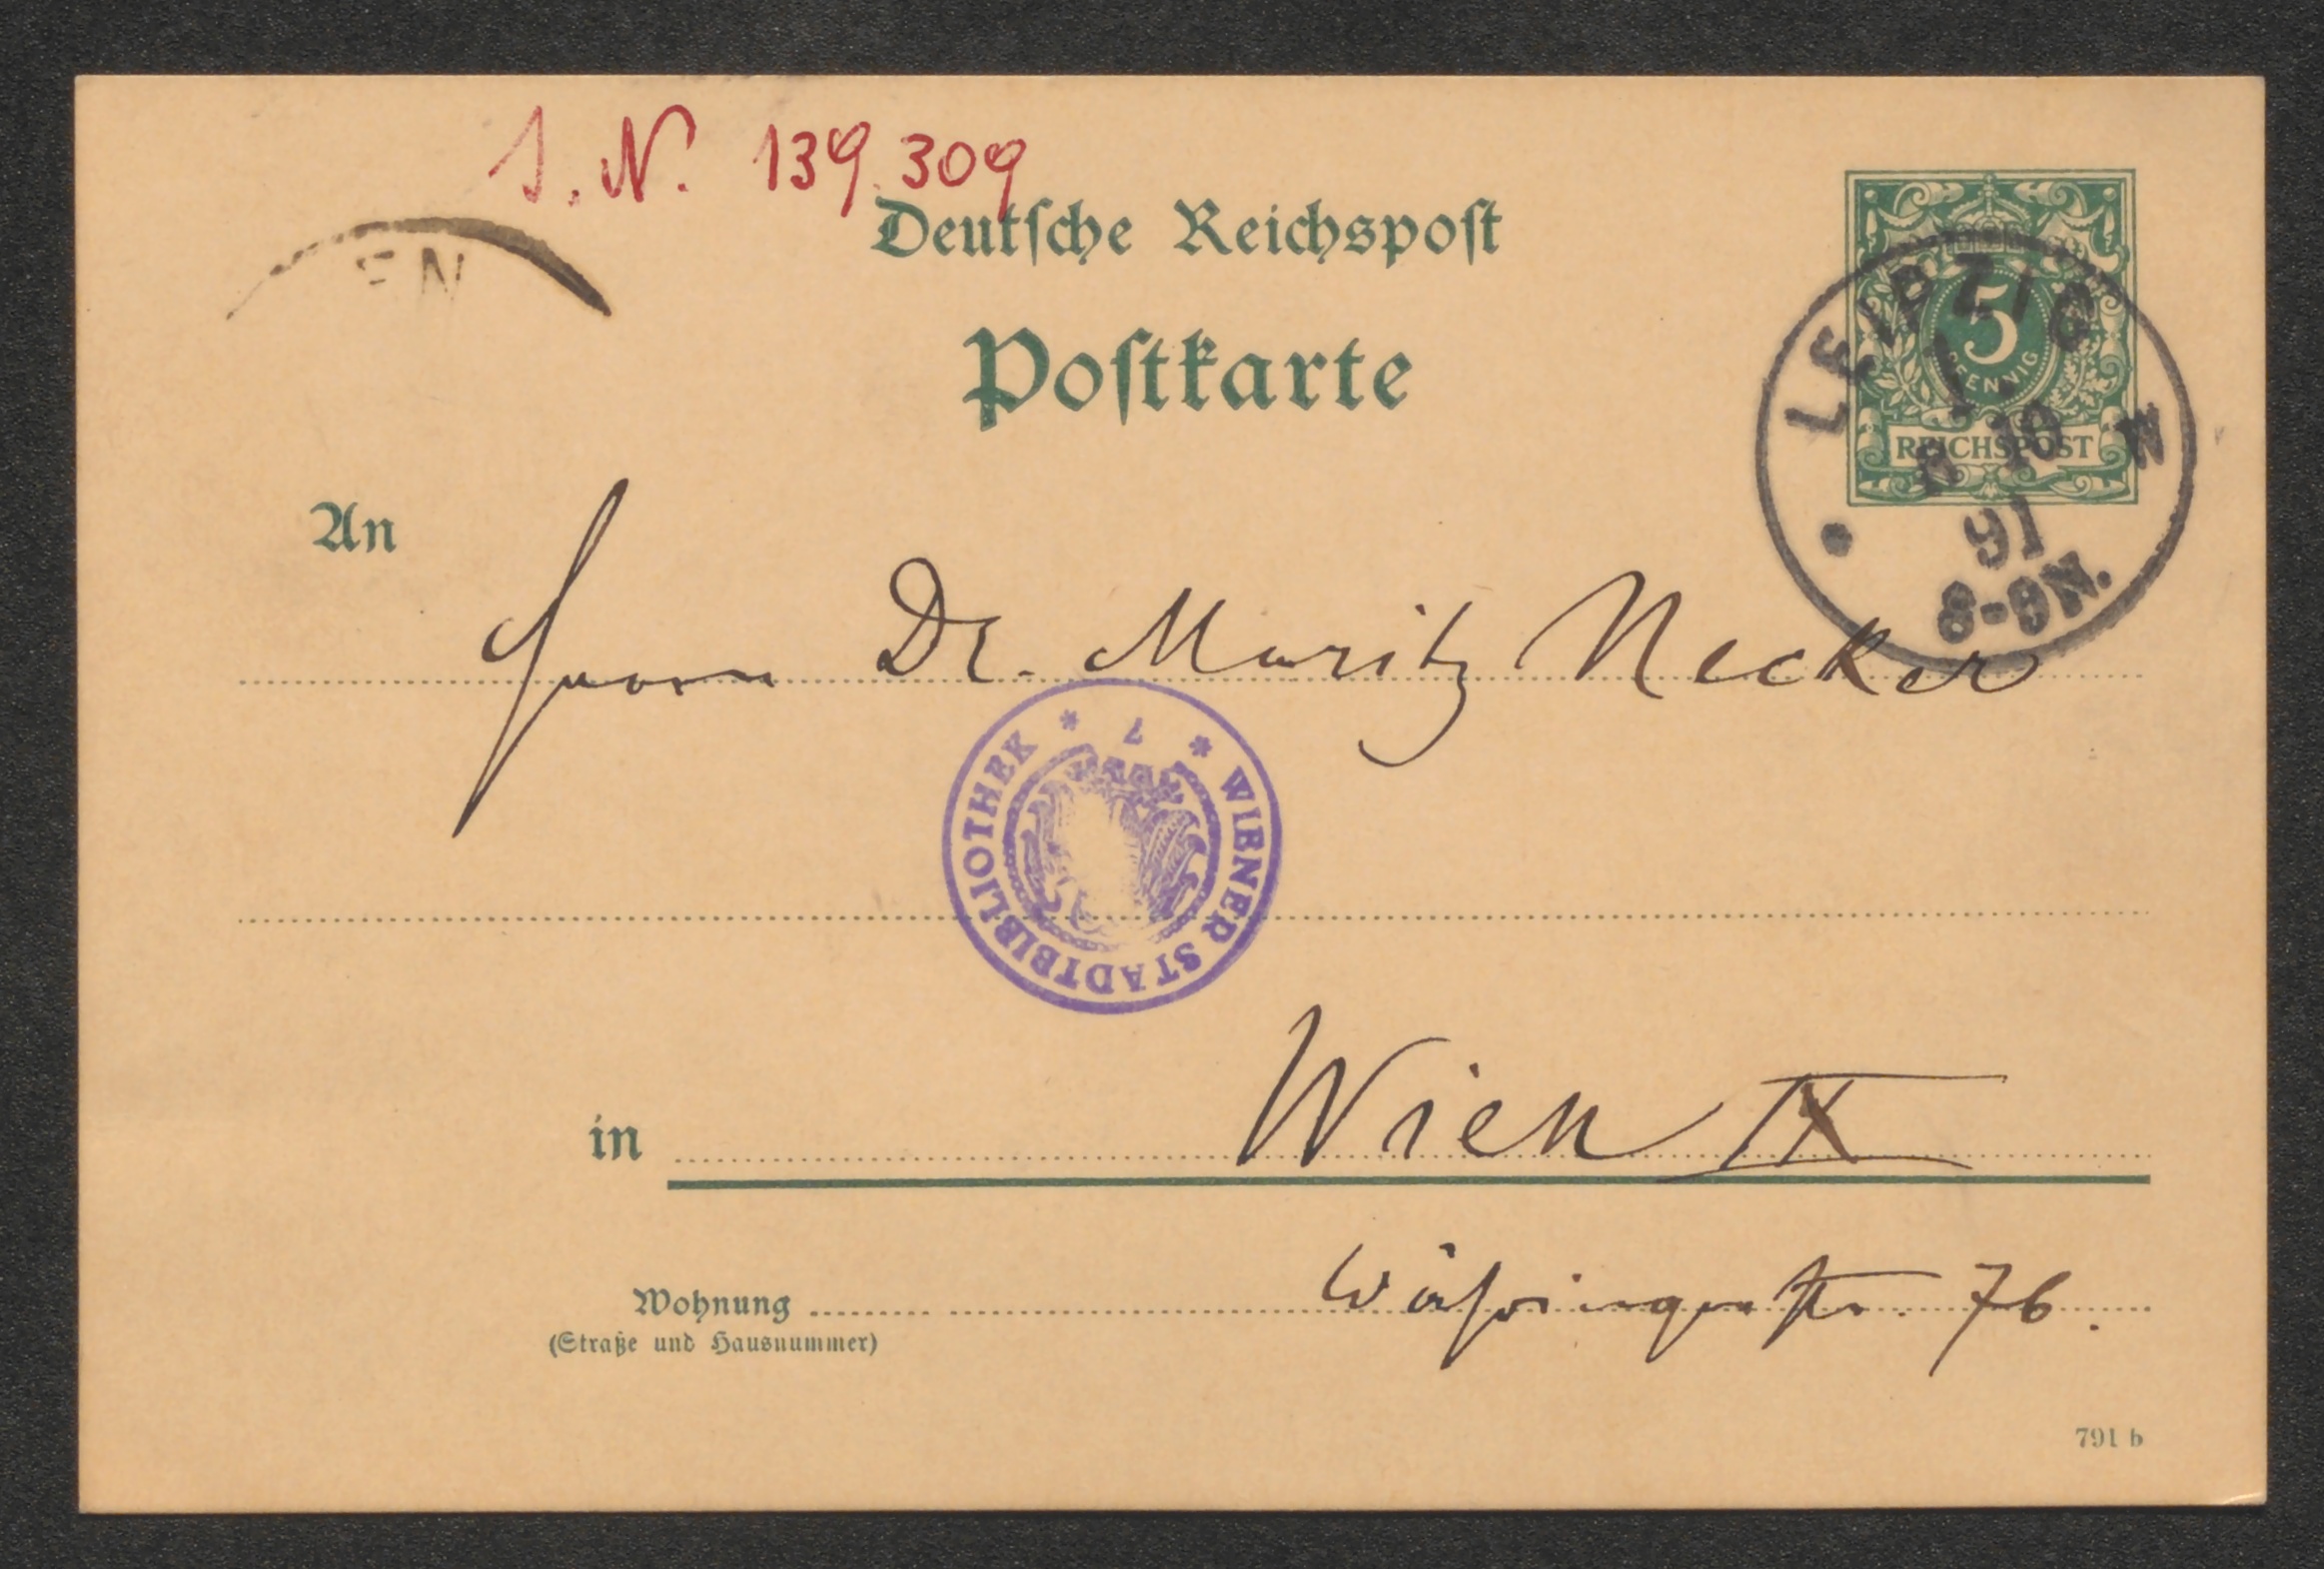 J. N. 139.309
Deutsche Reichspost
Postkarte
EN
5
PFENNIG
REICHSPOST
LEIPZIG
10
91
8-9N.
An
Herrn Dr. Moritz Necker
WIENER STADTBIBLIOTHEK * 7 *
in Wien IX
Wohnung Währingerstr. 76.
(Straße und Hausnummer)
791 b